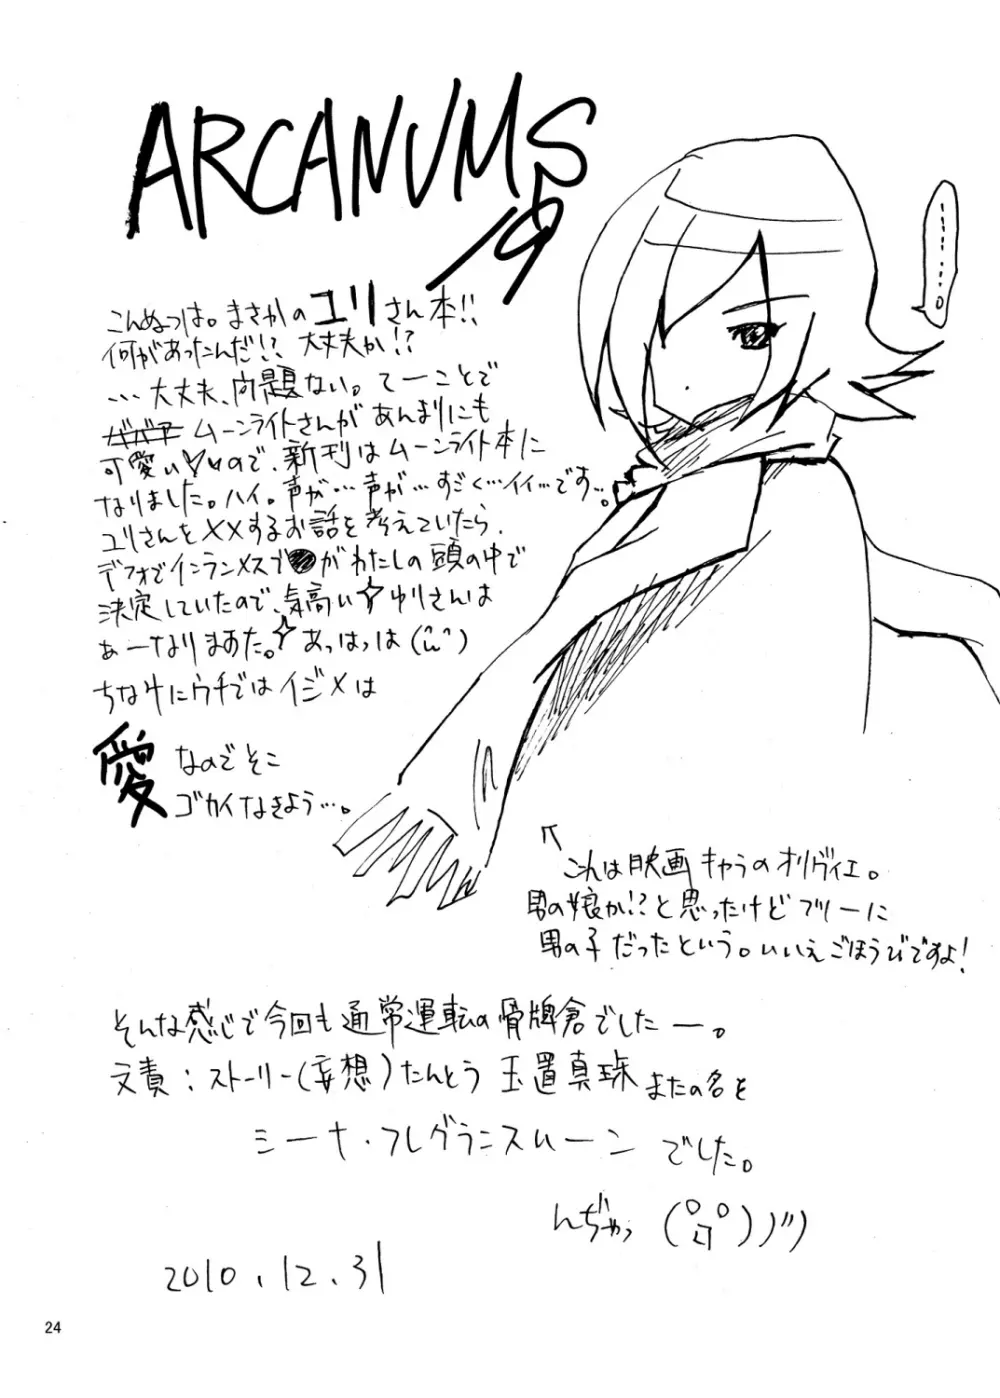 ARCANUMS
19
こんぬつは。まさかのユリさん本!!
何があったんだ!? 大丈夫か!?
…大丈夫、問題ない。てーことで
ムーンライトさんがあんまりにも
可愛いので、新刊はムーンライト本に
なりました。ハイ。声が…声が…すごく…イイ…です…。
ユリさんを××するお話を考えていたら、
デフォでインランメスブ●がわたしの頭の中で
決定していたので、気高い☆ゆりさんは
ぁーなりまぁた。☆あっはっは(^ω^)
ちなみにウチではイジメは
愛なのでそこ
ゴカイなきよう…。
………。
↖これは映画キャラのオリヴィエ。
男の娘か!?と思ったけどフツーに
男の子だったという。いいえごほうびですよ!
そんな感じで今回も通常運転の骨牌倉でしたー。
文責:ストーリー(妄想)たんとう 玉置真珠 またの名を
シーナ・フレグランスムーン でした。
んぢゃっ
2010.12.31
24